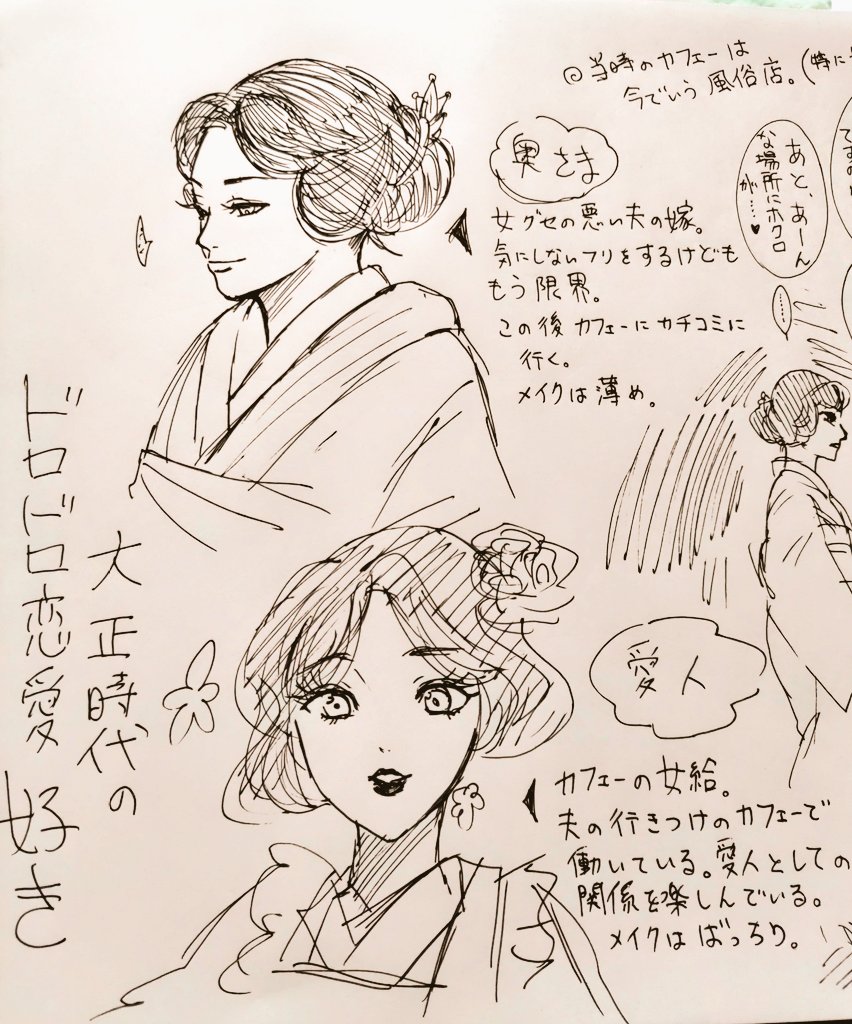 ◎当時のカフェーは
今でいう風俗店。(特に
奥さま
女グセの悪い夫の嫁。
気にしないフリをするけども
もう限界。
この後カフェーにカチコミに
行く。
メイクは薄め。
あと、あーん
な場所にホクロ
が……♥
………
大正時代の
ドロドロ恋愛好き
愛人
カフェーの女給。
夫の行きつけのカフェーで
働いている。愛人としての
関係を楽しんでいる。
メイクはばっちり。